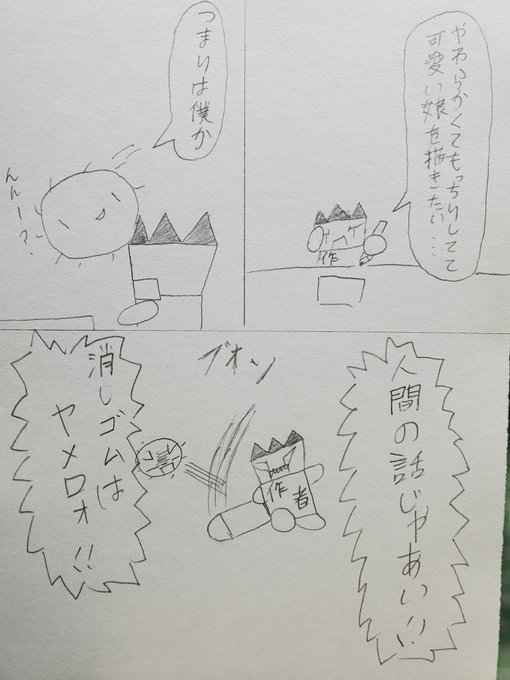 やわらかくてもっちりしてて
可愛い娘を描きたい…
作
つまりは僕か
んんー？
人間の話じゃあい!!
ブオン
作者
消しゴムは
ヤメロォ!!